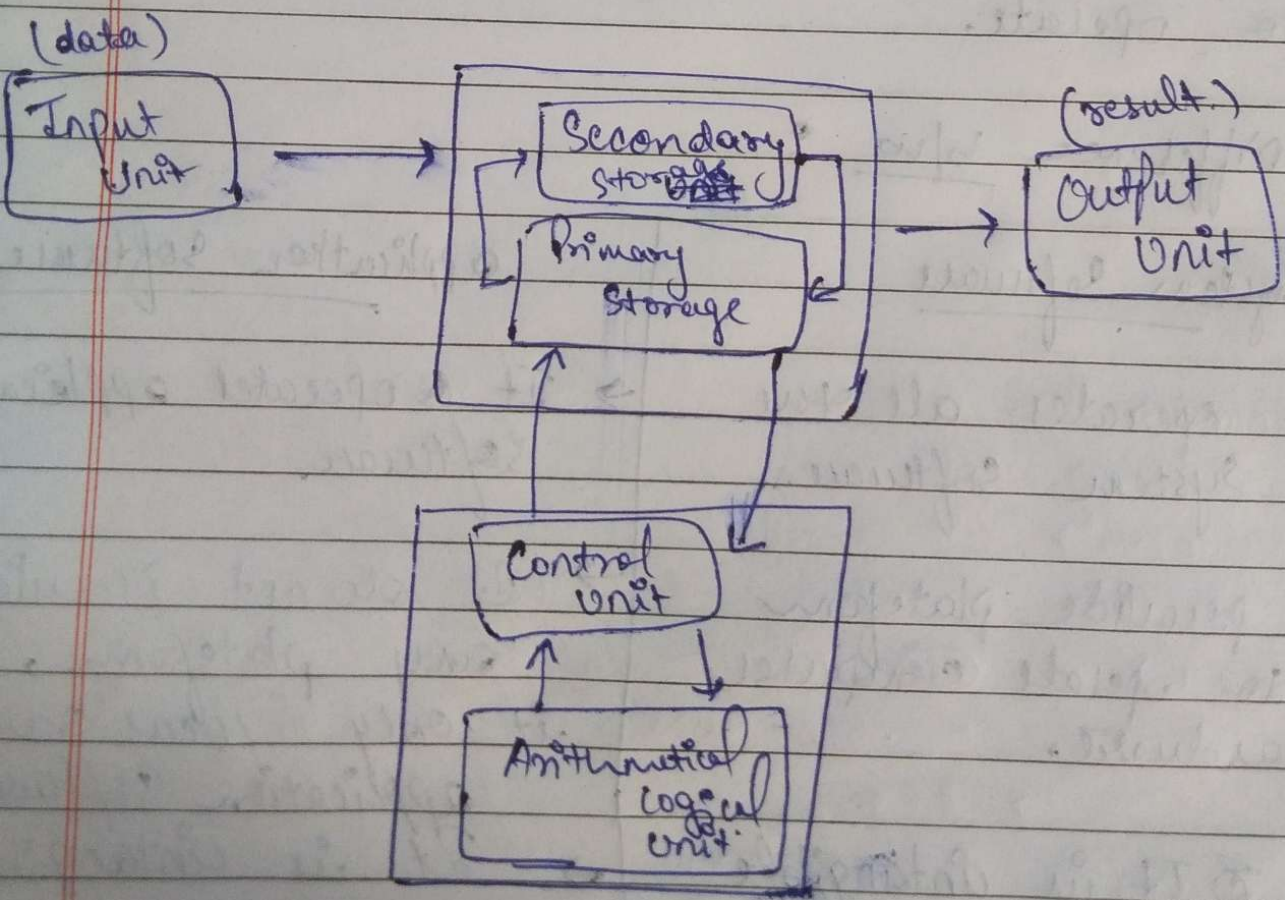 (data)
Input
Unit
Secondary
Storage
Primary
Storage
(result.)
Output
Unit
Control
Unit
Arithmetical
Logical
Unit.